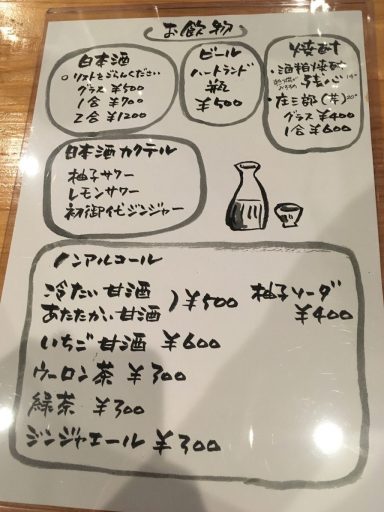 お飲物
日本酒
リストをごらんください
グラス ¥500
1合 ¥700
2合 ¥1200
ビール
ハートランド
瓶
¥500
焼酎
・酒粕焼酎
残心
・庄三郎(芋)
グラス ¥400
1合 ¥600
日本酒カクテル
柚子サワー
レモンサワー
初御代ジンジャー
ノンアルコール
冷たい甘酒
あたたかい甘酒 ) ¥500
柚子ソーダ
¥400
いちご甘酒 ¥600
ウーロン茶 ¥300
緑茶 ¥300
ジンジャエール ¥300